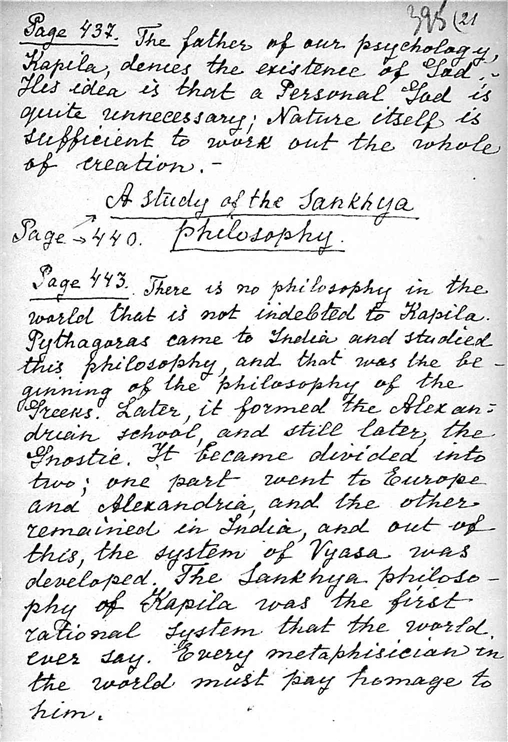 395 (21
Page 437. The father of our psychology,
Kapila, denies the existence of God.-
His idea is that a Personal God is
quite unnecessary; Nature itself is
sufficient to work out the whole
of creation.-
A study of the Sankhya
Page → 440. Philosophy.
Page 443. There is no philosophy in the
world that is not indebted to Kapila.
Pythagoras came to India and studied
this philosophy, and that was the be-
ginning of the philosophy of the
Greeks. Later, it formed the Alexan-
drian school, and still later, the
Gnostic. It became divided into
two; one part went to Europe
and Alexandria, and the other
remained in India, and out of
this, the system of Vyasa was
developed. The Sankhya philoso-
phy of Kapila was the first
rational system that the world
ever say. Every metaphisician in
the world must pay homage to
him.